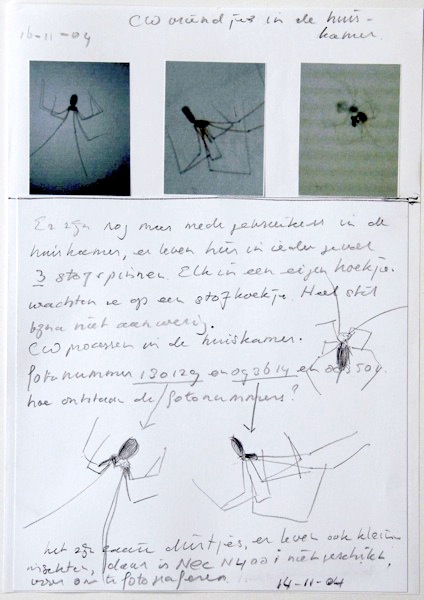 CW vriendjes in de huis-
16-11-04 kamer.
Er zijn nog meer mede gebruikers in de
huiskamer, er leven hier in ieder geval
3 stofspinnen. Elk in een eigen hoekje
wachten ze op een stofhoekje. Heel stil
bijna niet aanwezig.
CW processen in de huiskamer.
fotonummer 130129 en 093614 en
hoe ontstaan de fotonummers?
het zijn diertjes, er leven ook kleine
daar is NEC N400i niet geschikt
voor om te fotograferen 14-11-04